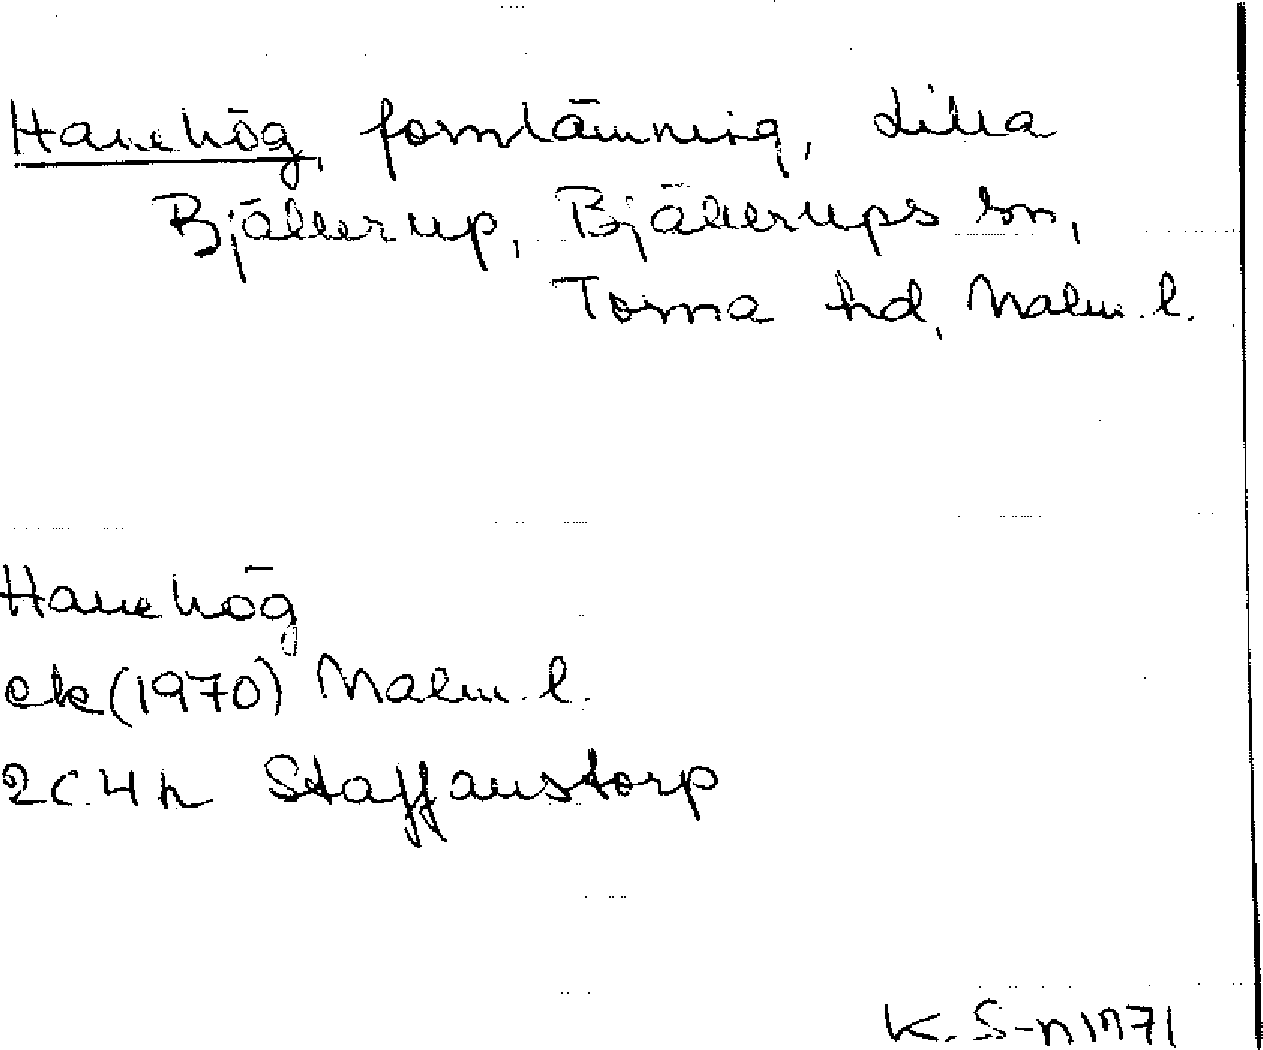 Hanehög, fornlämning, Lilla
Bjällerup, Bjällerups sn,
Torna hd, Malm. l.
Hanehög
ek (1970) Malm. l.
2C 4h Staffanstorp
K. S-n 1971